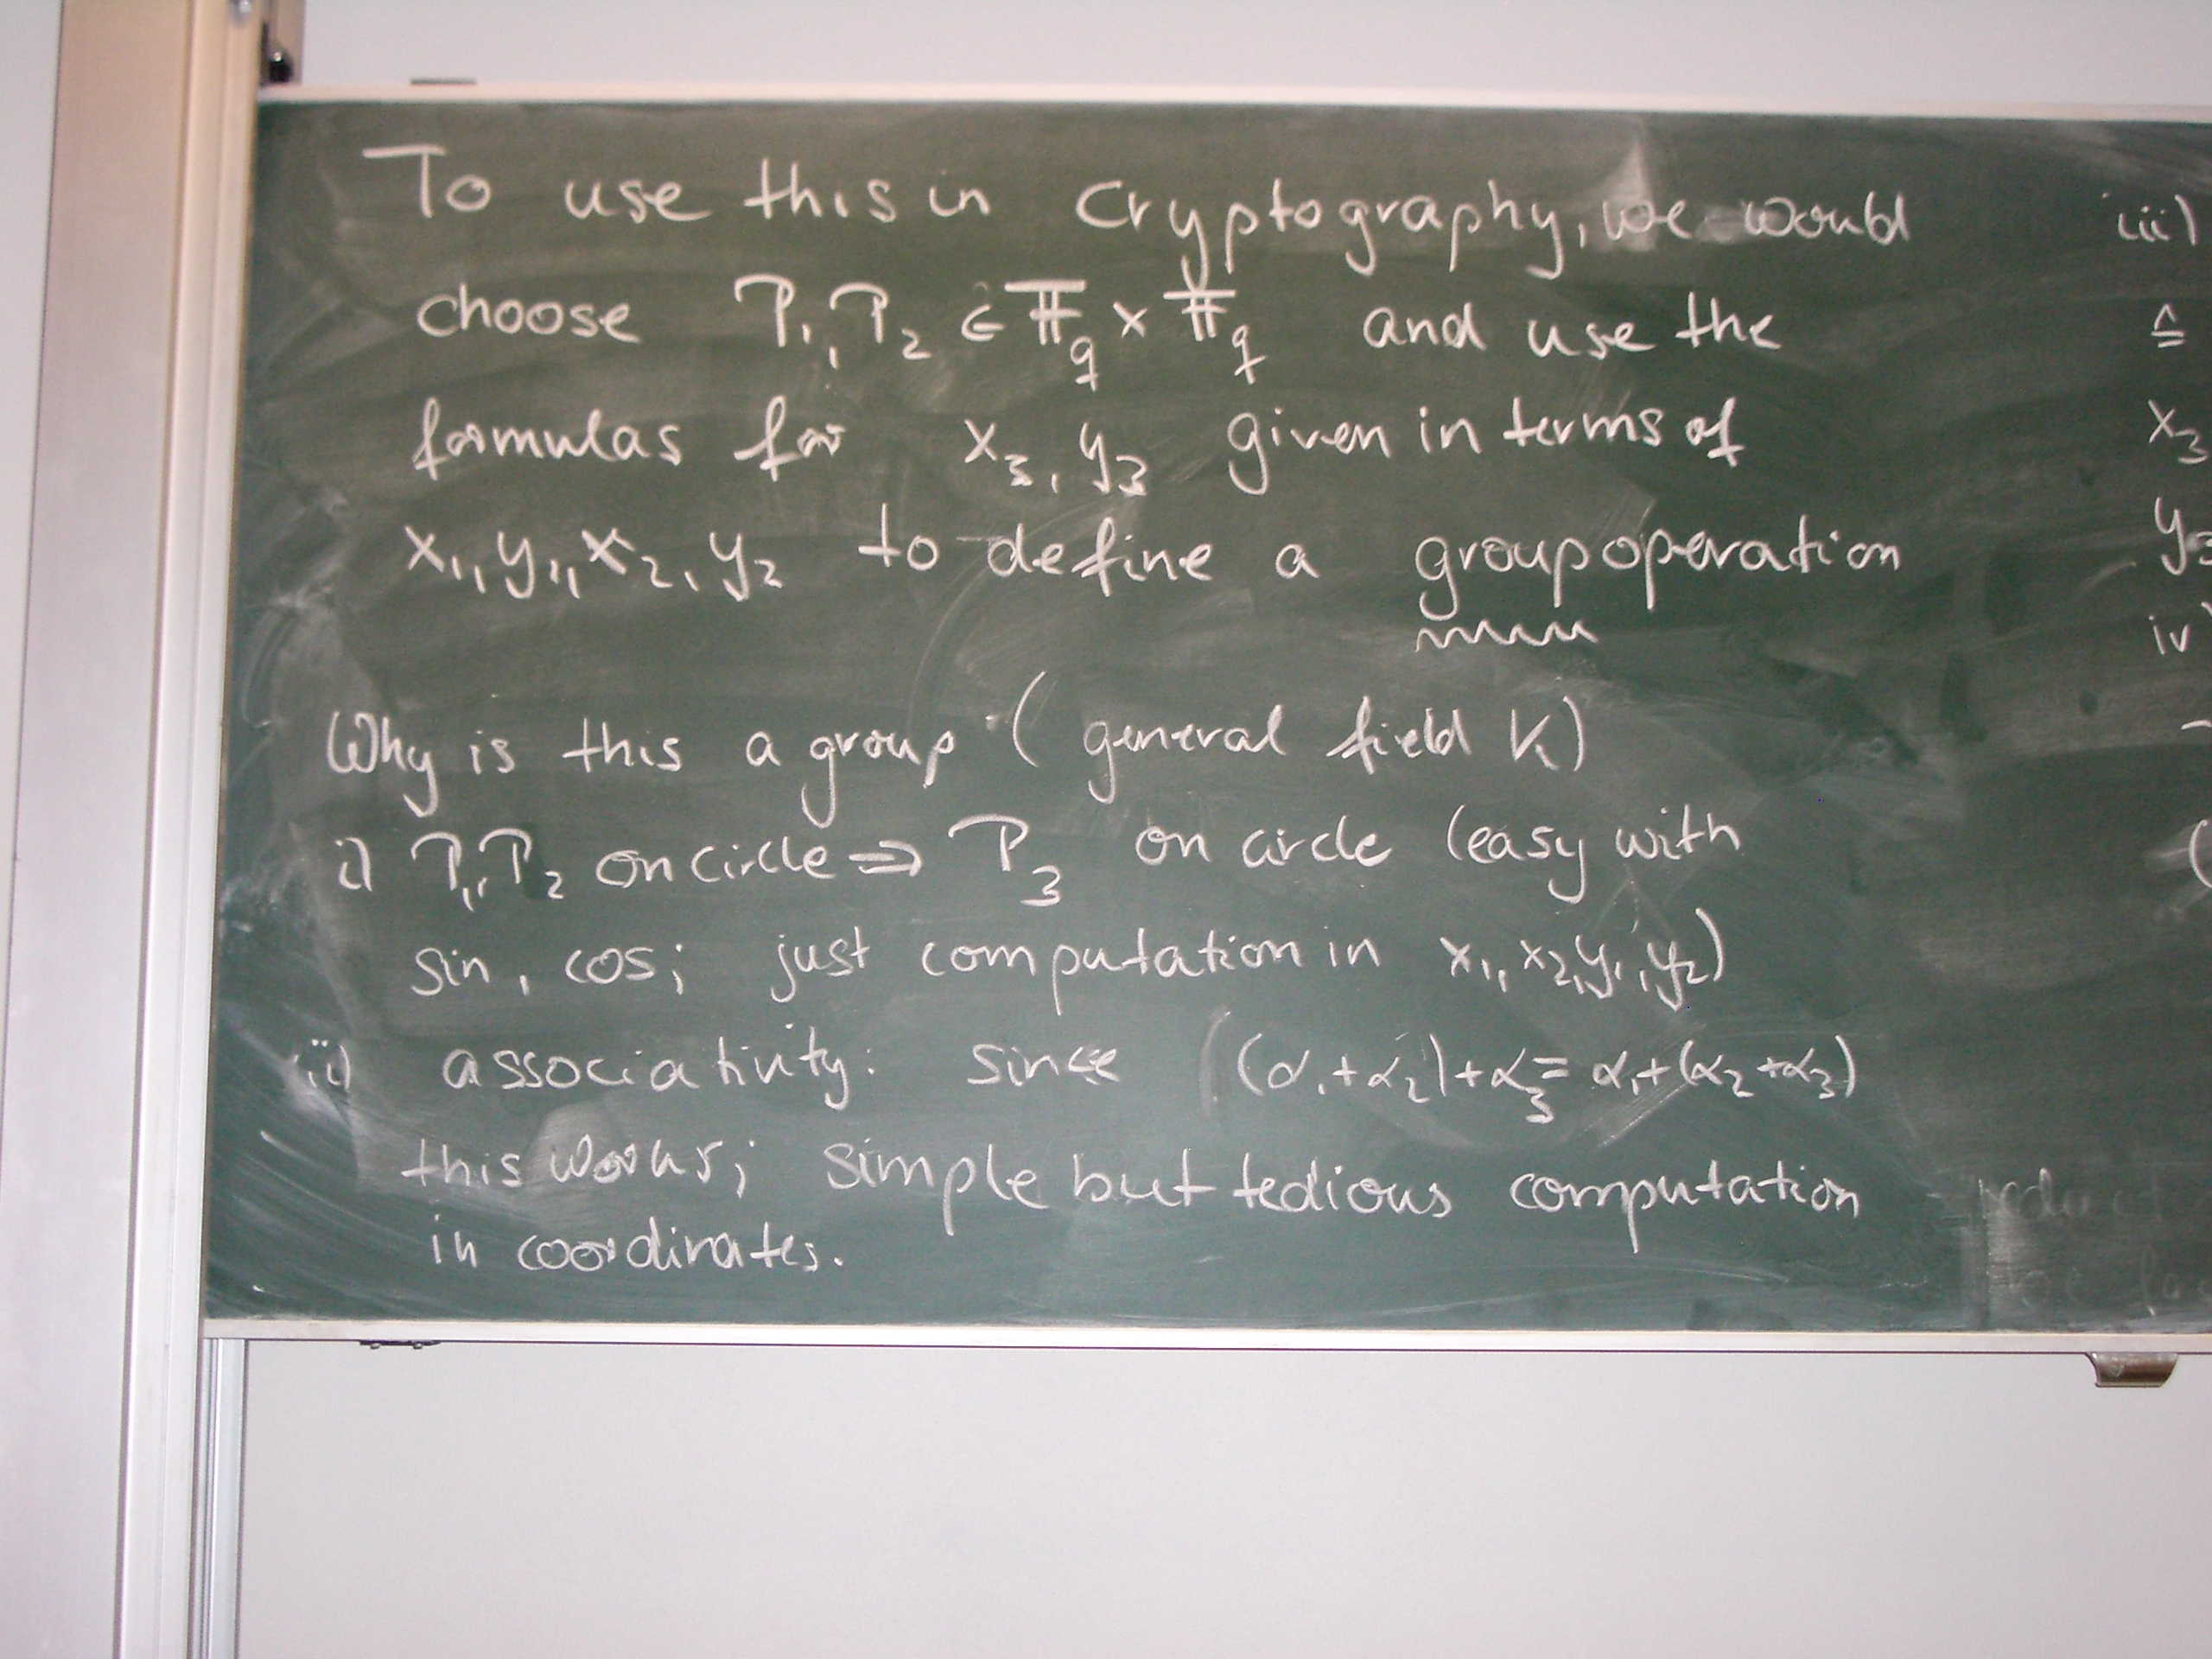 To use this in cryptography, we would
choose P₁, P₂ ∈ 𝔽_q × 𝔽_q and use the
formulas for x₃, y₃ given in terms of
x₁, y₁, x₂, y₂ to define a group operation
Why is this a group (general field K)
i) P₁, P₂ on circle ⇒ P₃ on circle (easy with
sin, cos; just computation in x₁, x₂, y₁, y₂)
ii) associativity: since (α₁+α₂)+α₃ = α₁+(α₂+α₃)
this works; simple but tedious computation
in coordinates.
iii)
≙
x₃
y₃
iv